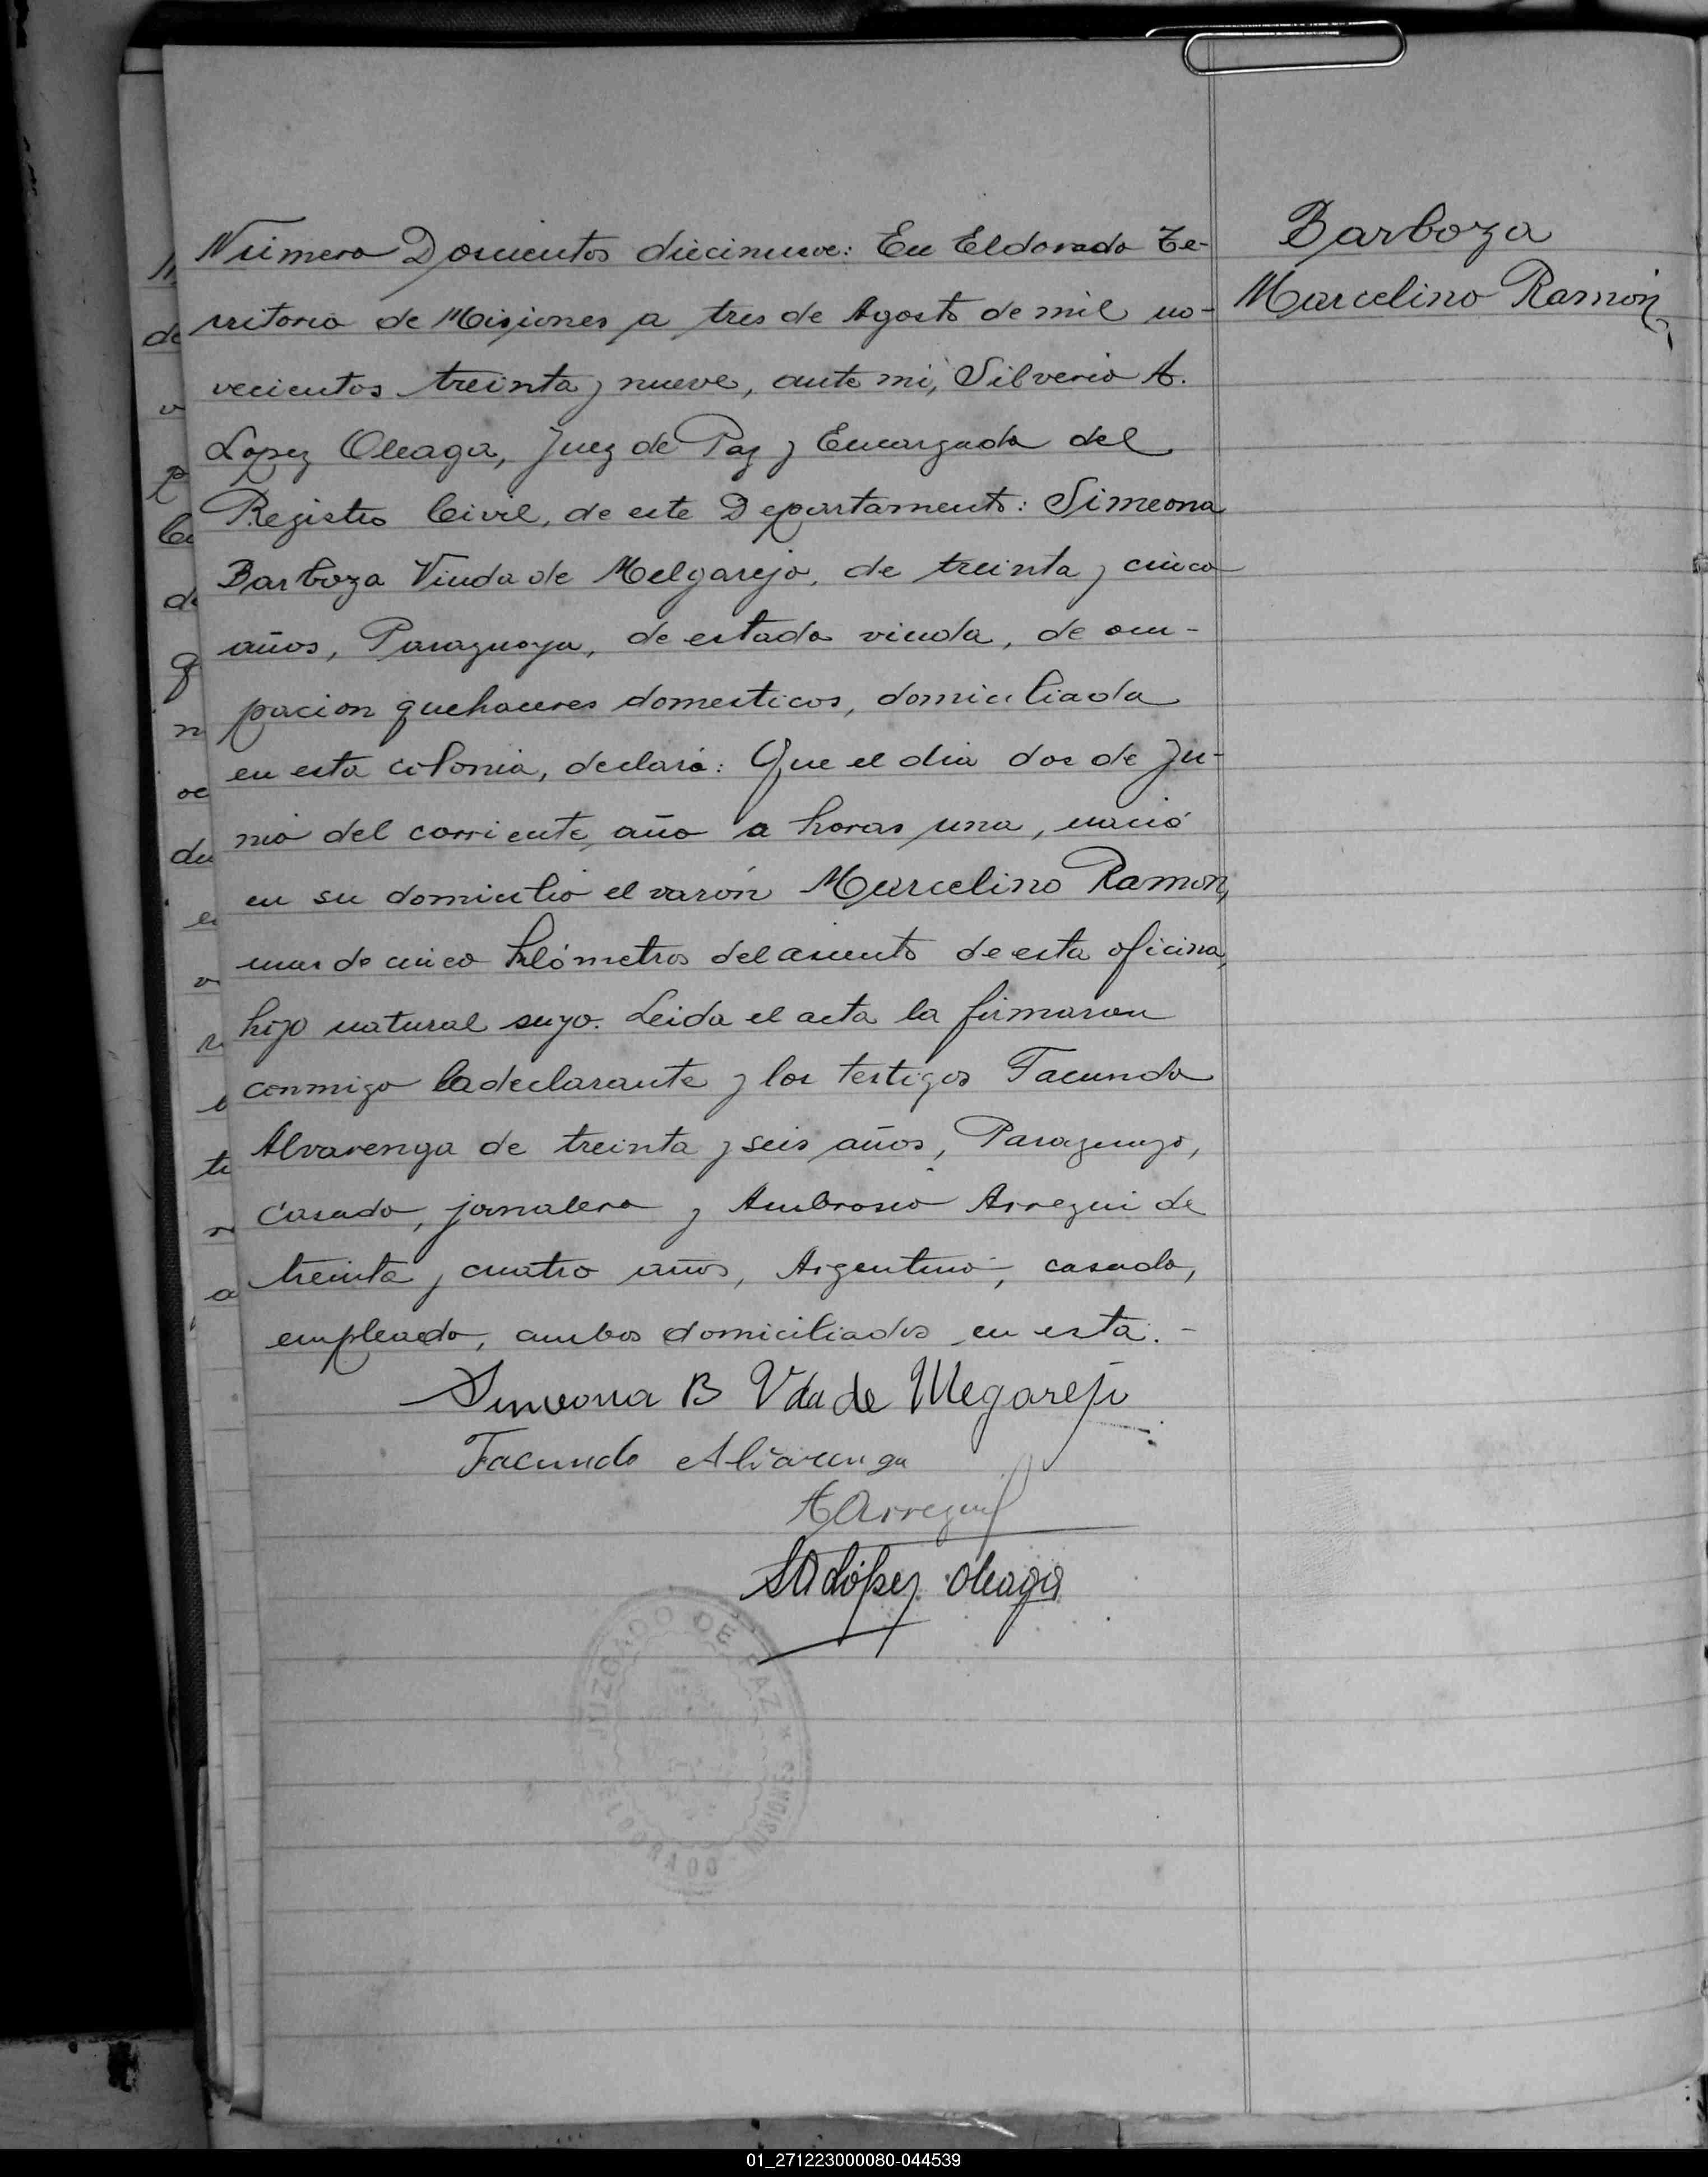 Número Doscientos diecinueve: En Eldorado Te-
rritorio de Misiones a tres de Agosto de mil no-
vecientos treinta y nueve, ante mi, Silverio A.
Lopez Oleaga, Juez de Paz y Encargado del
Registro Civil, de este Departamento: Simeona
Barboza Viuda de Melgarejo, de treinta y cinco
años, Paraguaya, de estado viuda, de ocu-
pacion quehaceres domesticos, domiciliada
en esta colonia, declaró: Que el dia dos de Ju-
nio del corriente año a horas una, nació
en su domicilio el varón Marcelino Ramon,
mas de cinco kilómetros del asiento de esta oficina,
hijo natural suyo. Leida el acta la firmaron
conmigo la declarante y los testigos Facundo
Alvarenga de treinta y seis años, Paraguayo,
casado, jornalero y Ambrosio Arregui de
treinta y cuatro años, Argentino, casado,
empleado, ambos domiciliados en esta.-
Simeona B Vda de Megarejo
Facundo Alvarenga
A Arregui
SA López Oleaga
JUZGADO DE PAZ * MISIONES
ELDORADO
Barboza
Marcelino Ramón
01_271223000080-044539